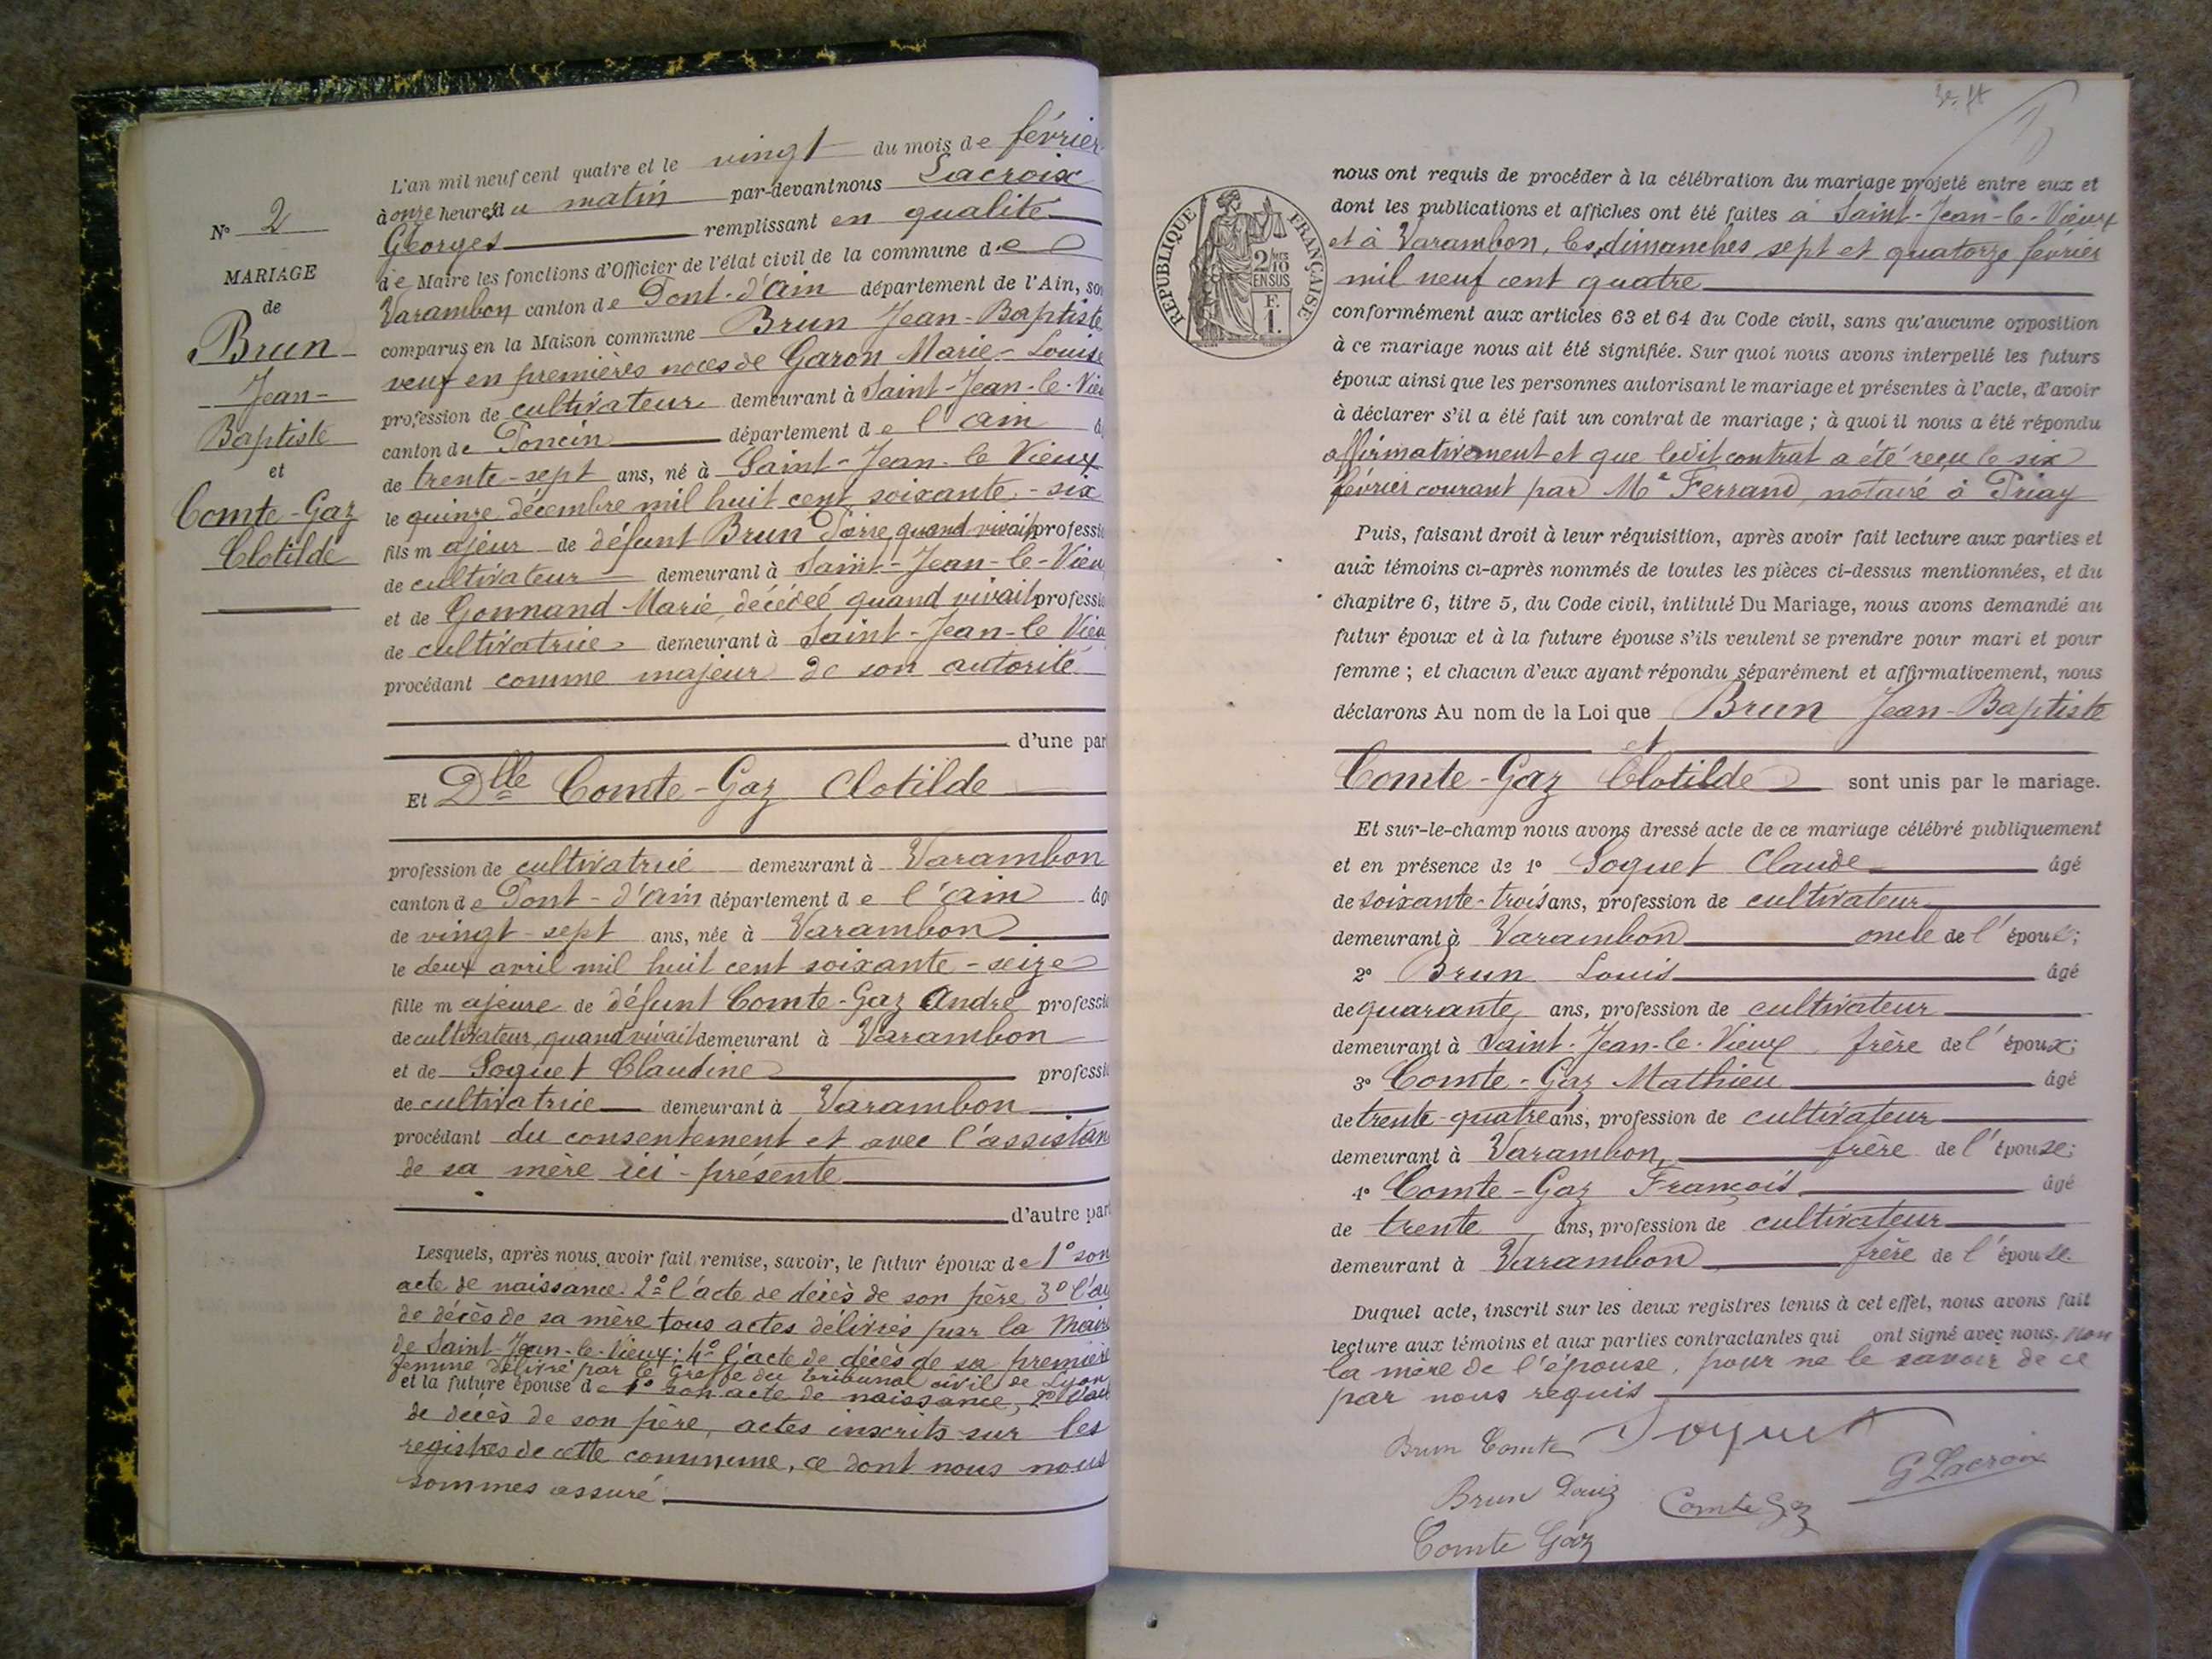 N° 2
MARIAGE
de
Brun
Jean-
Baptiste
et
Comte-Gaz
Clotilde
L'an mil neuf cent quatre et le vingt du mois de février
à onze heures du matin par-devant nous Lacroix
Georges remplissant en qualité
de Maire les fonctions d'Officier de l'état civil de la commune de
Varambon canton de Pont-d'Ain département de l'Ain, so
comparus en la Maison commune Brun Jean-Baptiste
veuf en premières noces de Garon Marie-Louise
profession de cultivateur demeurant à Saint-Jean-le-Vieu
canton de Poncin département de l'Ain â
de trente-sept ans, né à Saint-Jean-le Vieux
le quinze décembre mil huit cent soixante-six
fils majeur de défunt Brun Pierre, quand vivait professi
de cultivateur demeurant à Saint-Jean-le-Vieu
et de Gonnand Marie, décédée quand vivait professi
de cultivatrice demeurant à Saint-Jean-le Vieu
procédant comme majeur de son autorité
d'une par
Et Dlle Comte-Gaz Clotilde
profession de cultivatrice demeurant à Varambon
canton de Pont-d'Ain département de l'Ain âg
de vingt-sept ans, née à Varambon
le deux avril mil huit cent soixante-seize
fille majeure de défunt Comte-Gaz André professi
de cultivateur, quand vivait demeurant à Varambon
et de Soquet Claudine professi
de cultivatrice demeurant à Varambon
procédant du consentement et avec l'assistan
de sa mère ici-présente
d'autre part
Lesquels, après nous avoir fait remise, savoir, le futur époux de 1° son
acte de naissance. 2° l'acte de décès de son père 3° l'a
de décès de sa mère tous actes délivrés par la Mairi
de Saint-Jean-le-Vieux; 4° l'acte de décès de sa premièr
femme délivré par le Greffe du tribunal civil de Lyon
et la future épouse de 1° son acte de naissance, 2° l'act
de décès de son père, actes inscrits sur les
registres de cette commune, ce dont nous nous
sommes assuré.
RÉPUBLIQUE FRANÇAISE
2/10 MES
EN SUS
F.
1.
nous ont requis de procéder à la célébration du mariage projeté entre eux et
dont les publications et affiches ont été faites à Saint-Jean-le-Vieux
et à Varambon, les dimanches sept et quatorze février
mil neuf cent quatre
conformément aux articles 63 et 64 du Code civil, sans qu'aucune opposition
à ce mariage nous ait été signifiée. Sur quoi nous avons interpellé les futurs
époux ainsi que les personnes autorisant le mariage et présentes à l'acte, d'avoir
à déclarer s'il a été fait un contrat de mariage ; à quoi il nous a été répondu
affirmativement et que ledit contrat a été reçu le six
février courant par Me Ferrand, notaire à Priay
Puis, faisant droit à leur réquisition, après avoir fait lecture aux parties et
aux témoins ci-après nommés de toutes les pièces ci-dessus mentionnées, et du
chapitre 6, titre 5, du Code civil, intitulé Du Mariage, nous avons demandé au
futur époux et à la future épouse s'ils veulent se prendre pour mari et pour
femme ; et chacun d'eux ayant répondu séparément et affirmativement, nous
déclarons Au nom de la Loi que Brun Jean-Baptiste
et
Comte-Gaz Clotilde sont unis par le mariage.
Et sur-le-champ nous avons dressé acte de ce mariage célébré publiquement
et en présence de 1° Soquet Claude âgé
de soixante-trois ans, profession de cultivateur
demeurant à Varambon oncle de l'épouse;
2° Brun Louis âgé
de quarante ans, profession de cultivateur
demeurant à Saint-Jean-le-Vieux, frère de l'époux;
3° Comte-Gaz Mathieu âgé
de trente-quatre ans, profession de cultivateur
demeurant à Varambon, frère de l'épouse;
4° Comte-Gaz François âgé
de trente ans, profession de cultivateur
demeurant à Varambon frère de l'épouse.
Duquel acte, inscrit sur les deux registres tenus à cet effet, nous avons fait
lecture aux témoins et aux parties contractantes qui ont signé avec nous, non
la mère de l'épouse, pour ne le savoir de ce
par nous requis
Brun Comte Soquet
Brun Louis Comte Gaz G Lacroix
Comte Gaz